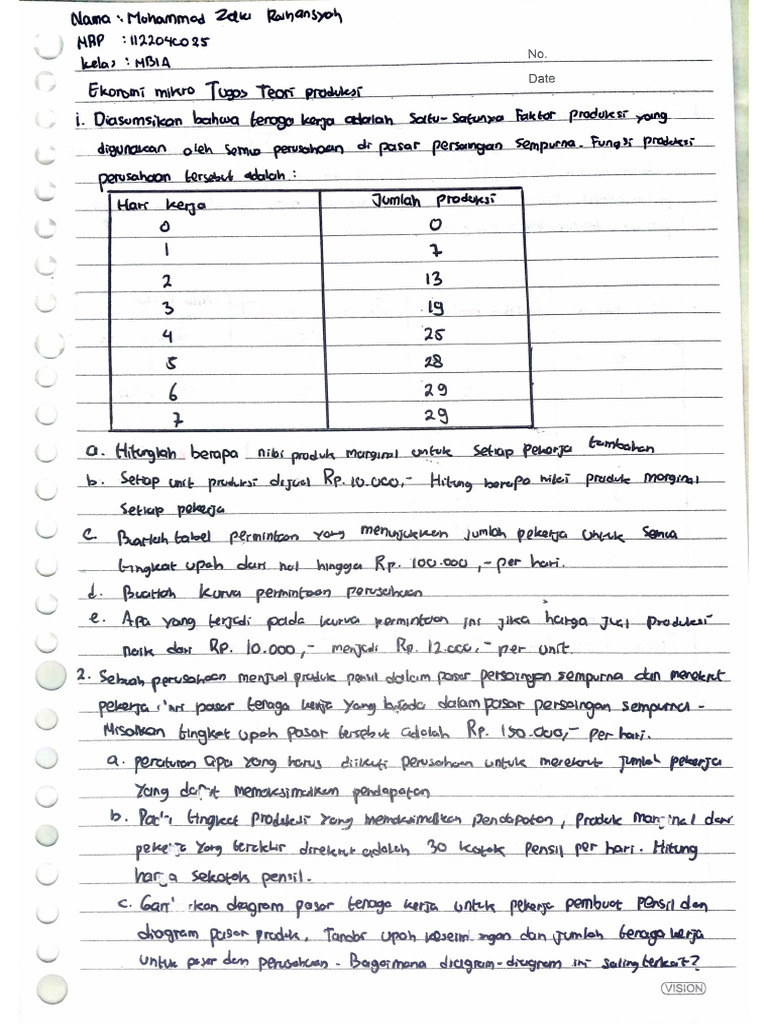 Nama : Mohammad Zaki Raihansyah
NRP : 112204C025
Kelas : MBIA
No.
Date
Ekonomi mikro Tugas Teori produksi
1. Diasumsikan bahwa tenaga kerja adalah satu-satunya Faktor produksi yang
digunakan oleh semua perusahaan di pasar persaingan sempurna. Fungsi produksi
perusahaan tersebut adalah :
Hari kerja Jumlah produksi
0 0
1 7
2 13
3 19
4 25
5 28
6 29
7 29
a. Hitunglah berapa nilai produk marginal untuk setiap pekerja tambahan
b. Setiap unit produksi dijual Rp. 10.000,- Hitung berapa nilai produk marginal
setiap pekerja
c. Buatlah tabel permintaan yang menunjukkan jumlah pekerja untuk semua
tingkat upah dari nol hingga Rp. 100.000,- per hari.
d. Buatlah kurva permintaan perusahaan
e. Apa yang terjadi pada kurva permintaan ini jika harga jual produksi
naik dari Rp. 10.000,- menjadi Rp. 12.000,- per unit.
2. Sebuah perusahaan menjual produk pensil dalam pasar persaingan sempurna dan merekrut
pekerja dari pasar tenaga kerja yang berada dalam pasar persaingan sempurna -
Misalkan tingkat upah pasar tersebut adalah Rp. 150.000,- per hari.
a. peraturan apa yang harus diikuti perusahaan untuk merekrut jumlah pekerja
yang dapat memaksimalkan pendapatan
b. Pada tingkat produksi yang memaksimalkan pendapatan, produk marginal dari
pekerja yang terakhir direkrut adalah 30 kotak pensil per hari. Hitung
harga sekotak pensil.
c. Gambarkan diagram pasar tenaga kerja untuk pekerja pembuat pensil dan
diagram pasar produk, Tandai upah keseimbangan dan jumlah tenaga kerja
untuk pasar dan perusahaan - Bagaimana diagram-diagram ini saling terkait?
VISION